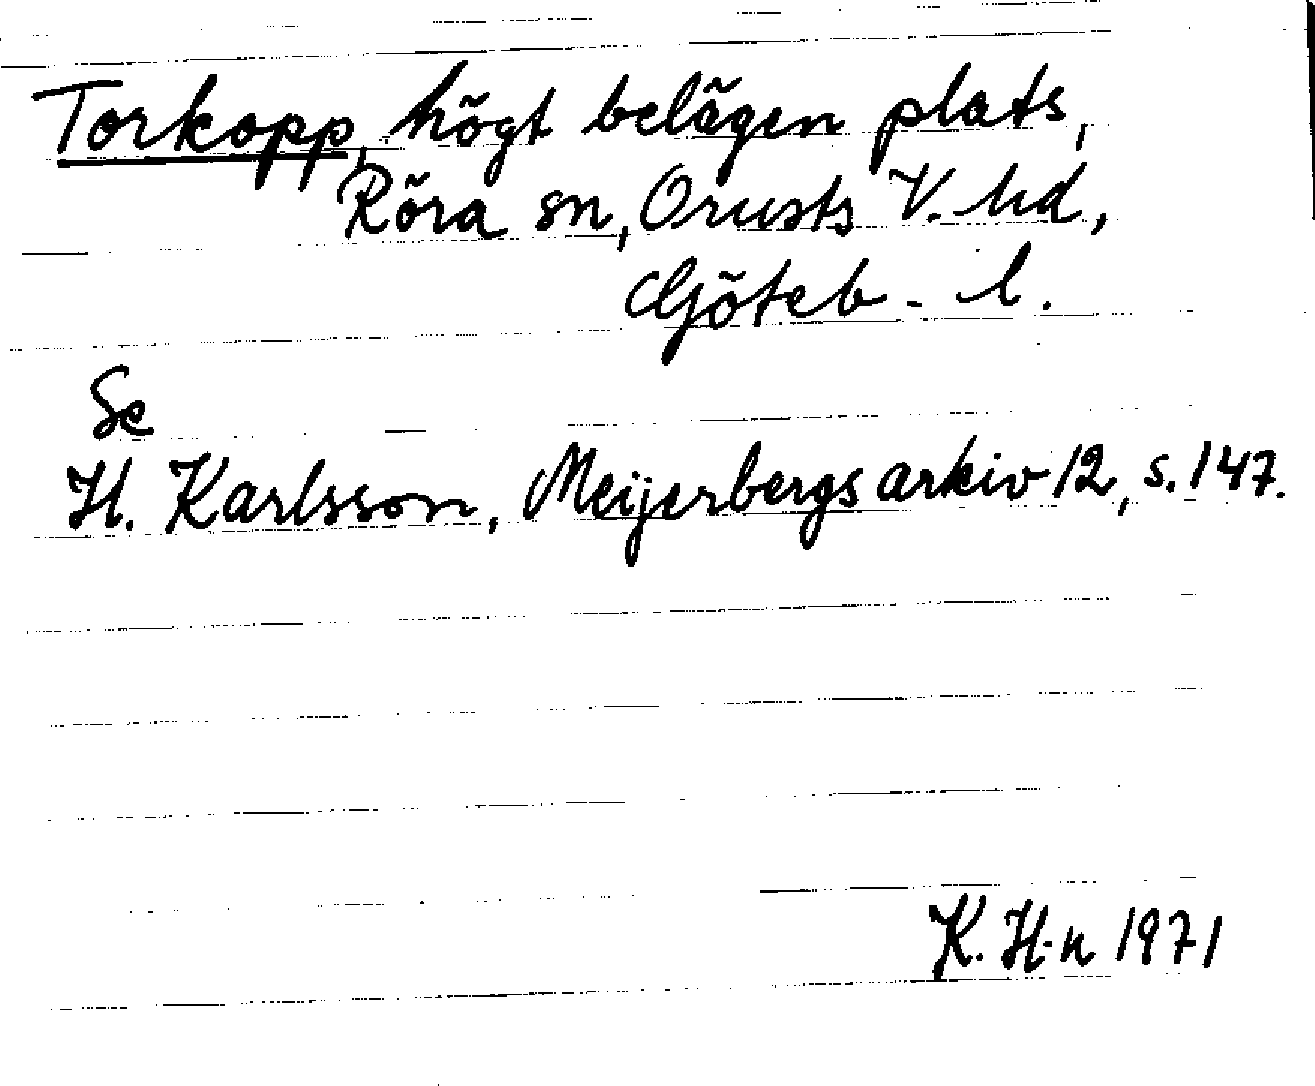 Torkopp, högt belägen plats,
Röra sn, Orusts V. hd,
Göteb - l.
Se
H. Karlsson, Meijerbergs arkiv 12, s. 147.
K. H-n 1971